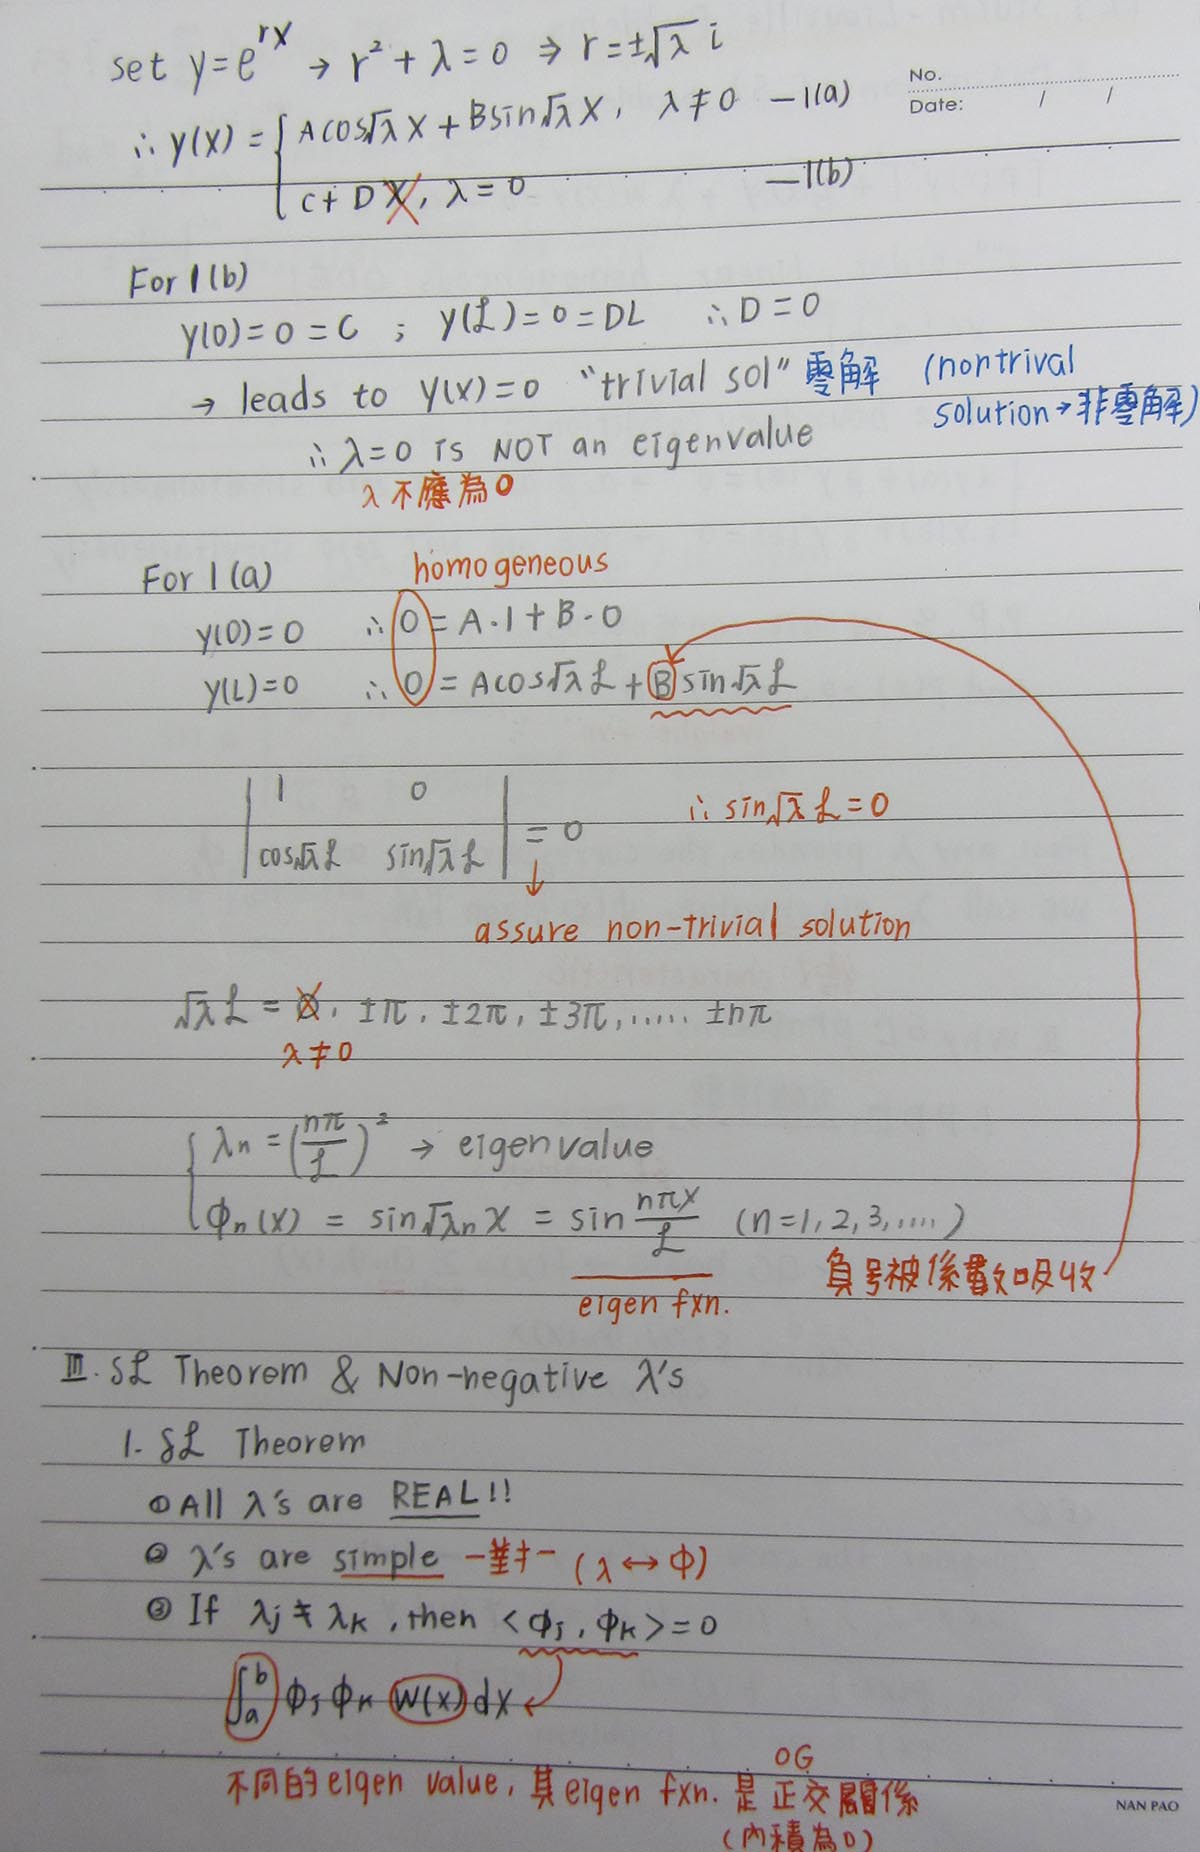 set y=e^{rx} → r²+λ=0 ⇒ r=±√λ i
No.
Date: / /
∴ y(x) = { Acos√λx + Bsin√λx, λ≠0 —1(a)
c+Dx, λ=0 —1(b)
For 1(b)
y(0)=0=C ; y(L)=0=DL ∴D=0
→ leads to y(x)=0 "trivial sol" 零解 (nontrival
solution→非零解)
∴ λ=0 is NOT an eigenvalue
λ不應為0
For 1(a) homogeneous
y(0)=0 ∴ 0 = A·1 + B·0
y(L)=0 ∴ 0 = Acos√λL + Bsin√λL
| 1 0 |
| cos√λL sin√λL | = 0 ∴ sin√λL=0
↓
assure non-trivial solution
√λL = 0, ±π, ±2π, ±3π, ..... ±nπ
λ≠0
{ λn = (nπ/L)² → eigenvalue
φn(x) = sin√λn x = sin nπx/L (n=1,2,3,....)
負号被係數吸收
eigen fxn.
Ⅲ. SL Theorem & Non-negative λ's
1. SL Theorem
① All λ's are REAL!!
② λ's are simple 一對一 (λ↔φ)
③ If λj≠λk, then <φj, φk>=0
∫_a^b φj φk w(x) dx
OG
不同的eigen value, 其eigen fxn. 是正交關係
(內積為0)
NAN PAO